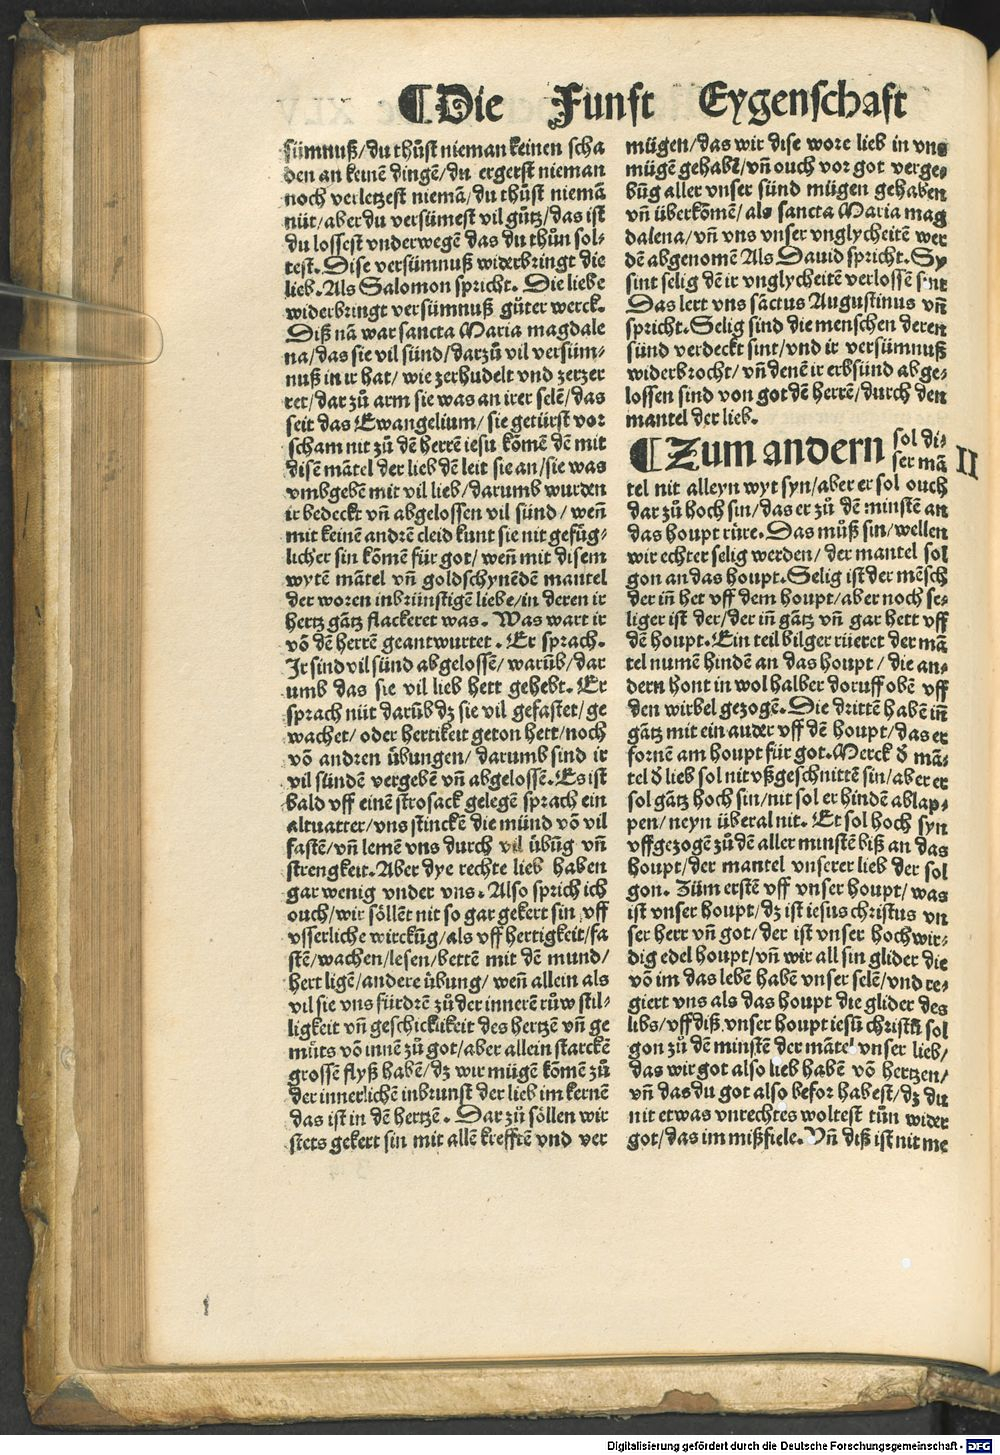 ¶Die Funft Eygenschaft
sümnuß/du thůst nieman keinen scha
den an keinē dingē/du ergerst nieman
noch verletzest niemā/du thůst niemā
nüt/aber du versümest vil gůtz/das ist
du lossest vnderwegē das du thůn sol-
test. Dise versümnuß widerbringt die
lieb. Als Salomon spricht. Die liebe
widerbringt versümnuß gůter werck.
Diß nā war sancta Maria magdale
na/das sie vil sünd/darzů vil versüm-
nuß in ir hat/ wie zerhudelt vnd zerzer
ret/dar zů arm sie was an irer selē/das
seit das Ewangelium/ sie getürst vor
scham nit zů dē herrē iesu kōmē dē mit
disē mātel der lieb dē leit sie an/sie was
vmbgebē mit vil lieb/darumb wurden
ir bedeckt vn̄ abgelossen vil sünd/ wen̄
mit keinē andrē cleid kunt sie nit gefüg-
licher sin kōmē für got/ wen̄ mit disem
wytē mātel vn̄ goldschynēdē mantel
der woren inbrünstigē liebe/in deren ir
hertz gātz flackeret was. Was wart ir
vō dē herrē geantwurtet. Er sprach.
Ir sind vil sünd abgelossē/ warūb/dar
umb das sie vil lieb hett gehebt. Er
sprach nüt darūb dz sie vil gefastet/ge
wachet/ oder hertikeit geton hett/noch
vō andren übungen/ darumb sind ir
vil sündē vergebē vn̄ abgelossē. Es ist
bald vff einē strosack gelegē sprach ein
altuatter/vns stinckē die münd vō vil
fastē/vn̄ lemē vns durch vil übūg vn̄
strengkeit. Aber dye rechte lieb haben
gar wenig vnder vns. Also sprich ich
ouch/wir söllēt nit so gar gekert sin vff
vsserliche wirckūg/als vff hertigkeit/fa
stē/wachen/lesen/bettē mit dē mund/
hert ligē/andere übung/ wen̄ allein als
vil sie vns fürdrē zů der innerē růw stil-
ligkeit vn̄ geschicklikeit des hertzē vn̄ ge
můts vō innē zů got/aber allein starckē
grossē flyß habē/dz wir mügē kōmē zů
der innerlichē inbrunst der lieb im kernē
das ist in dē hertzē. Dar zů söllen wir
stets gekert sin mit allē krefftē vnd ver
mügen/das wir dise wore lieb in vns
mügē gehabē/vn̄ ouch vor got verge-
būg aller vnser sünd mügen gehaben
vn̄ überkōmē/ als sancta Maria mag
dalena/vn̄ vns vnser vnglycheitē wer
dē abgenomē Als Dauid spricht. Sy
sint selig dē ir vnglycheitē verlossē sint
Das lert vns sāctus Augustinus vn̄
spricht. Selig sind die menschen deren
sünd verdeckt sint/vnd ir versümnuß
widerbrocht/ vn̄ denē ir erbsünd abge-
lossen sind von got dē herrē/durch den
mantel der lieb.
¶Zum andern sol di-
ser mā II
tel nit alleyn wyt syn/aber er sol ouch
dar zů hoch sin/das er zů dē minstē an
das houpt rüre. Das můß sin/wellen
wir echter selig werden/ der mantel sol
gon an das houpt. Selig ist der mēsch
der in̄ het vff dem houpt/aber noch se-
liger ist der/der in̄ gātz vn̄ gar hett vff
dē houpt. Ein teil bilger rüeret der mā
tel numē hindē an das houpt/ die an-
dern hont in wol halber doruff obē vff
den wirbel gezogē. Die drittē habē in̄
gātz mit ein ander vff dē houpt/das er
fornē am houpt für got. Merck ď mā-
tel ď lieb sol nit vßgeschnittē sin/aber er
sol gātz hoch sin/nit sol er hindē ablap-
pen/ neyn überal nit. Er sol hoch syn
vffgezogē zů dē aller minstē biß an das
houpt/der mantel vnserer lieb der sol
gon. Züm erstē vff vnser houpt/ was
ist vnser houpt/dz ist iesus christus vn
ser herr vn̄ got/der ist vnser hochwir-
dig edel houpt/vn̄ wir all sin glider die
vō im das lebē habē vnser selē/vnd re-
giert vns als das houpt die glider des
libs/vff diß vnser houpt iesū christū sol
gon zů dē minstē der mātel vnser lieb/
das wir got also lieb habē vō hertzen/
vn̄ das du got also befor habest/dz du
nit etwas vnrechtes woltest tůn wider
got/das im mißfiele. Vn̄ diß ist nit me
Digitalisierung gefördert durch die Deutsche Forschungsgemeinschaft - DFG